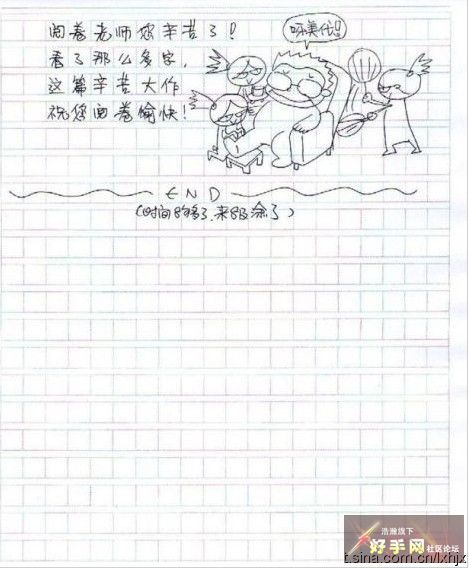 阅卷老师您辛苦了!
看了那么多字,
这篇辛苦大作
祝您阅卷愉快!
呀美代!!
END
(时间8够了.来8及涂了)
浩瀚旗下
好手网社区论坛
t.sina.com.cn/lxhjx